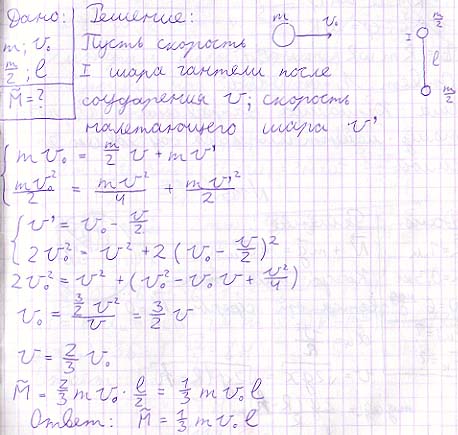 Дано: Решение:
m; v₀ Пусть скорость m v₀ m/2
m/2; l I шара гантели после I l
M̃ = ? соударения v; скорость m/2
налетающего шара v'
{ mv₀ = m/2 v + mv'
mv₀²/2 = mv²/4 + mv'²/2
{ v' = v₀ - v/2
2v₀² = v² + 2(v₀ - v/2)²
2v₀² = v² + (v₀² - v₀v + v²/4)
v₀ = 3/2 v²/v = 3/2 v
v = 2/3 v₀
M̃ = 2/3 mv₀ · l/2 = 1/3 m v₀ l
Ответ: M̃ = 1/3 m v₀ l